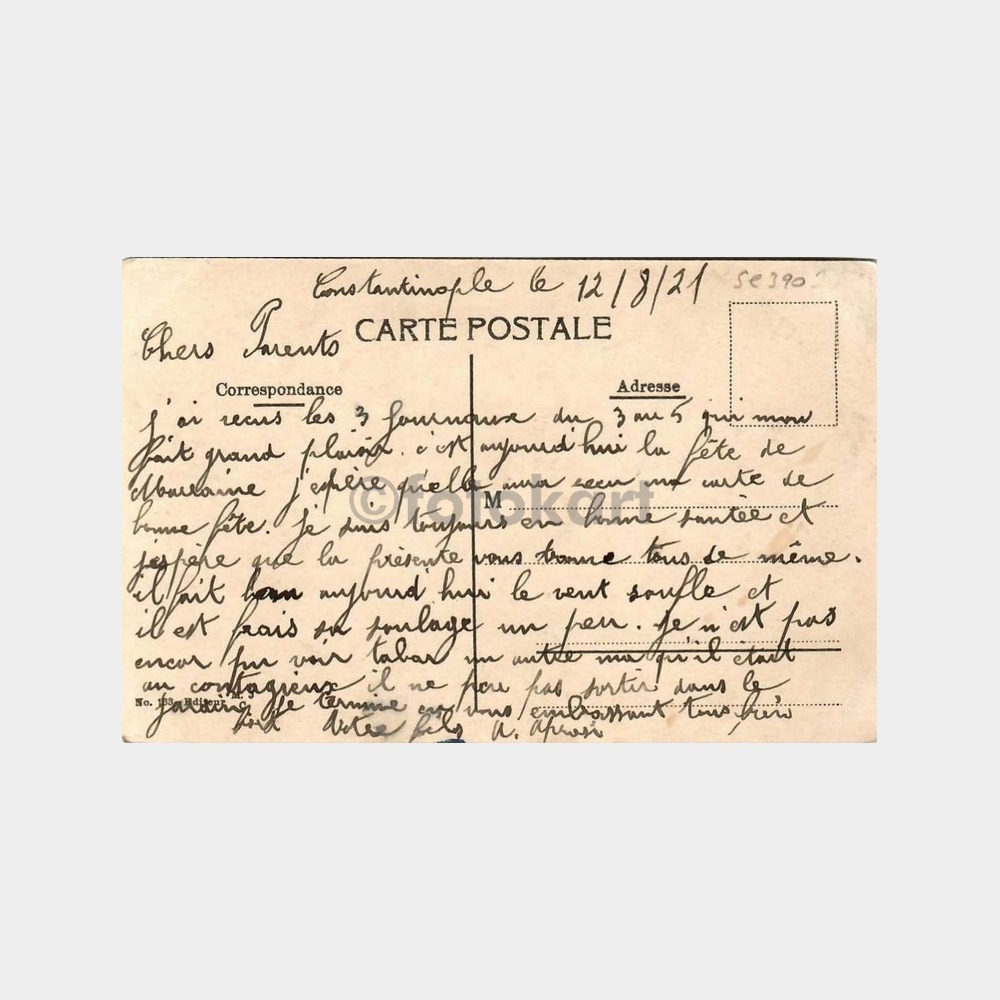 Constantinople le 12/8/21
SE390
Chers Parents
CARTE POSTALE
Correspondance
Adresse
j'ai recus les 3 Journaux du 3 au 5 qui mon
fait grand plaisir. c'est aujourd'hui la fête de
Marraine j'espère qu'elle aura recu ma carte de
©fotokart
M
bonne fête. je suis toujours en bonne santée et
j'espère que la présente vous trouve tous de même.
il fait bon aujourd'hui le vent soufle et
il est frais sa soulage un peu. je n'est pas
encor pu voir tabar un autre ma qu'il était
au contagieux il ne peu pas sortir dans le
No. 133 Editeur M.
jardins. Je termine en vous embrassant tous bien
fort Votre fils A.